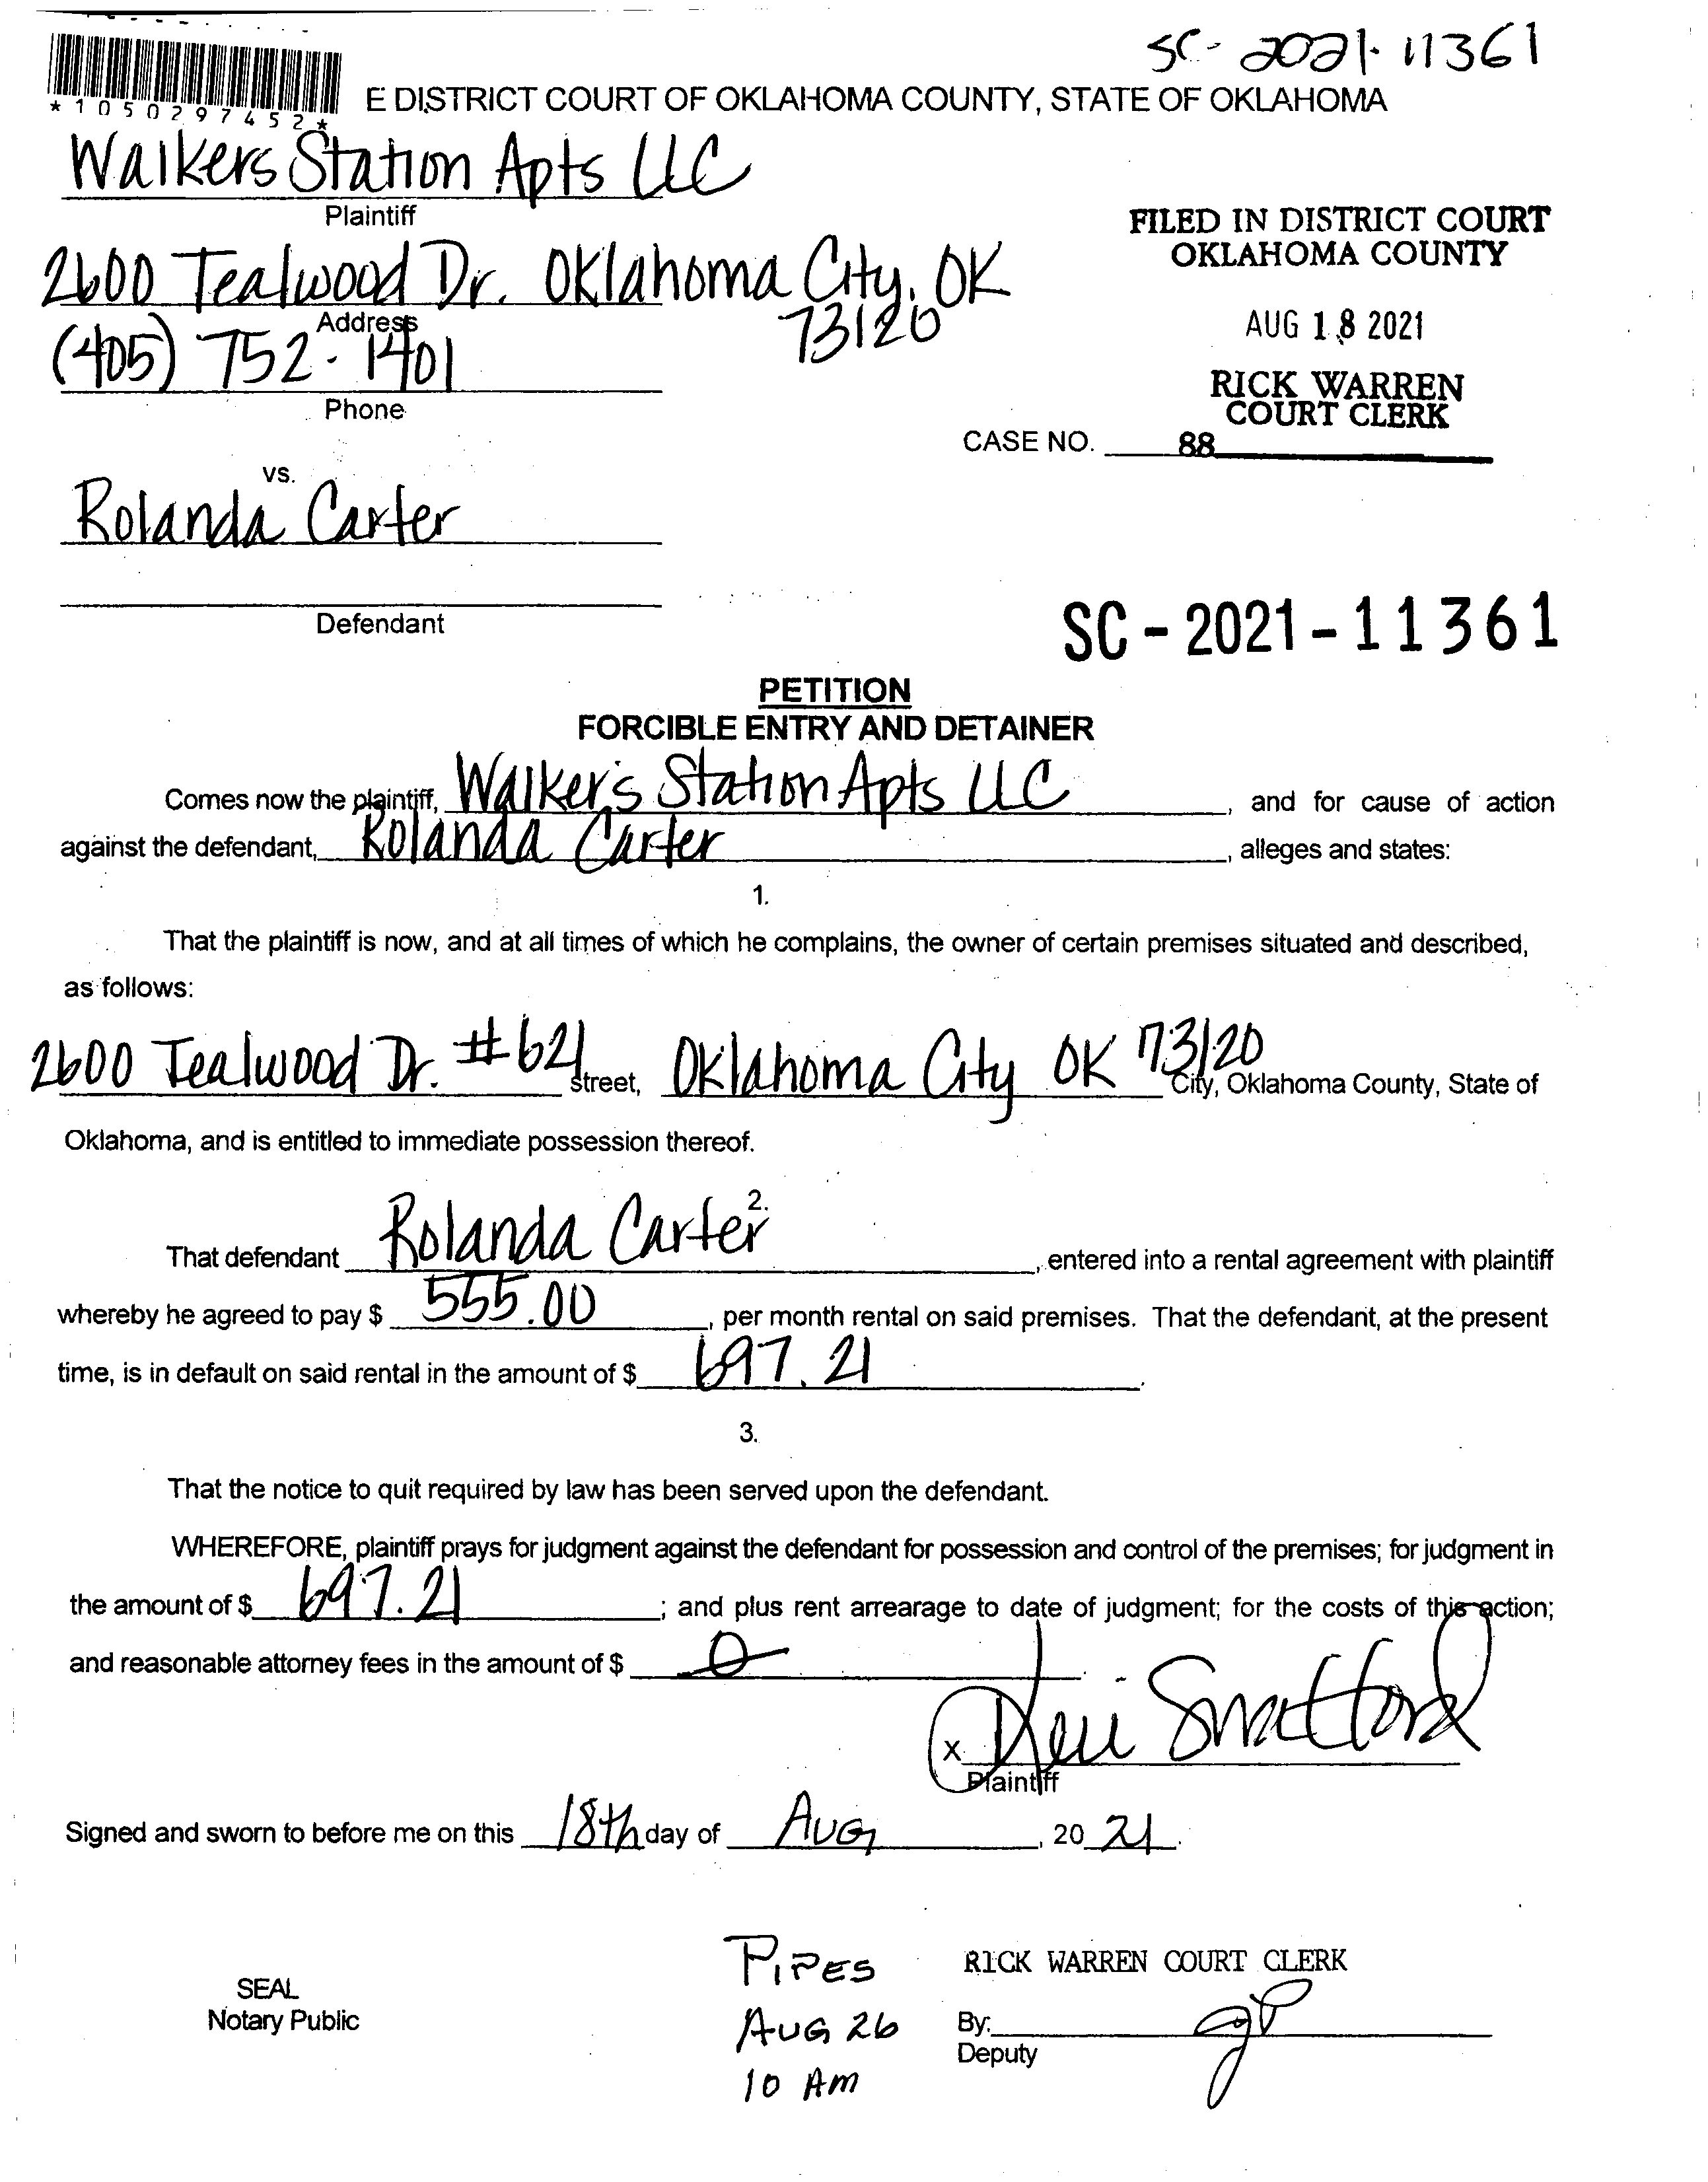 SC-2021-11361
*1050297452*
E DISTRICT COURT OF OKLAHOMA COUNTY, STATE OF OKLAHOMA
Walkers Station Apts LLC
Plaintiff
FILED IN DISTRICT COURT
OKLAHOMA COUNTY
2600 Tealwood Dr. Oklahoma City, OK
73120
Address
AUG 18 2021
(405) 752-1401
Phone
RICK WARREN
COURT CLERK
CASE NO. 88
vs.
Rolanda Carter
Defendant
SC-2021-11361
PETITION
FORCIBLE ENTRY AND DETAINER
Comes now the plaintiff, Walker's Station Apts LLC, and for cause of action
against the defendant, Rolanda Carter, alleges and states:
1.
That the plaintiff is now, and at all times of which he complains, the owner of certain premises situated and described,
as follows:
2600 Tealwood Dr. #621 Street, Oklahoma City OK 73120 City, Oklahoma County, State of
Oklahoma, and is entitled to immediate possession thereof.
2.
That defendant Rolanda Carter, entered into a rental agreement with plaintiff
whereby he agreed to pay $ 555.00, per month rental on said premises. That the defendant, at the present
time, is in default on said rental in the amount of $ 697.21.
3.
That the notice to quit required by law has been served upon the defendant.
WHEREFORE, plaintiff prays for judgment against the defendant for possession and control of the premises; for judgment in
the amount of $ 697.21; and plus rent arrearage to date of judgment; for the costs of this action;
and reasonable attorney fees in the amount of $ 0.
X
Plaintiff
Signed and sworn to before me on this 18th day of Aug, 20 21.
PIPES
AUG 26
10 AM
RICK WARREN COURT CLERK
SEAL
Notary Public
By:
Deputy